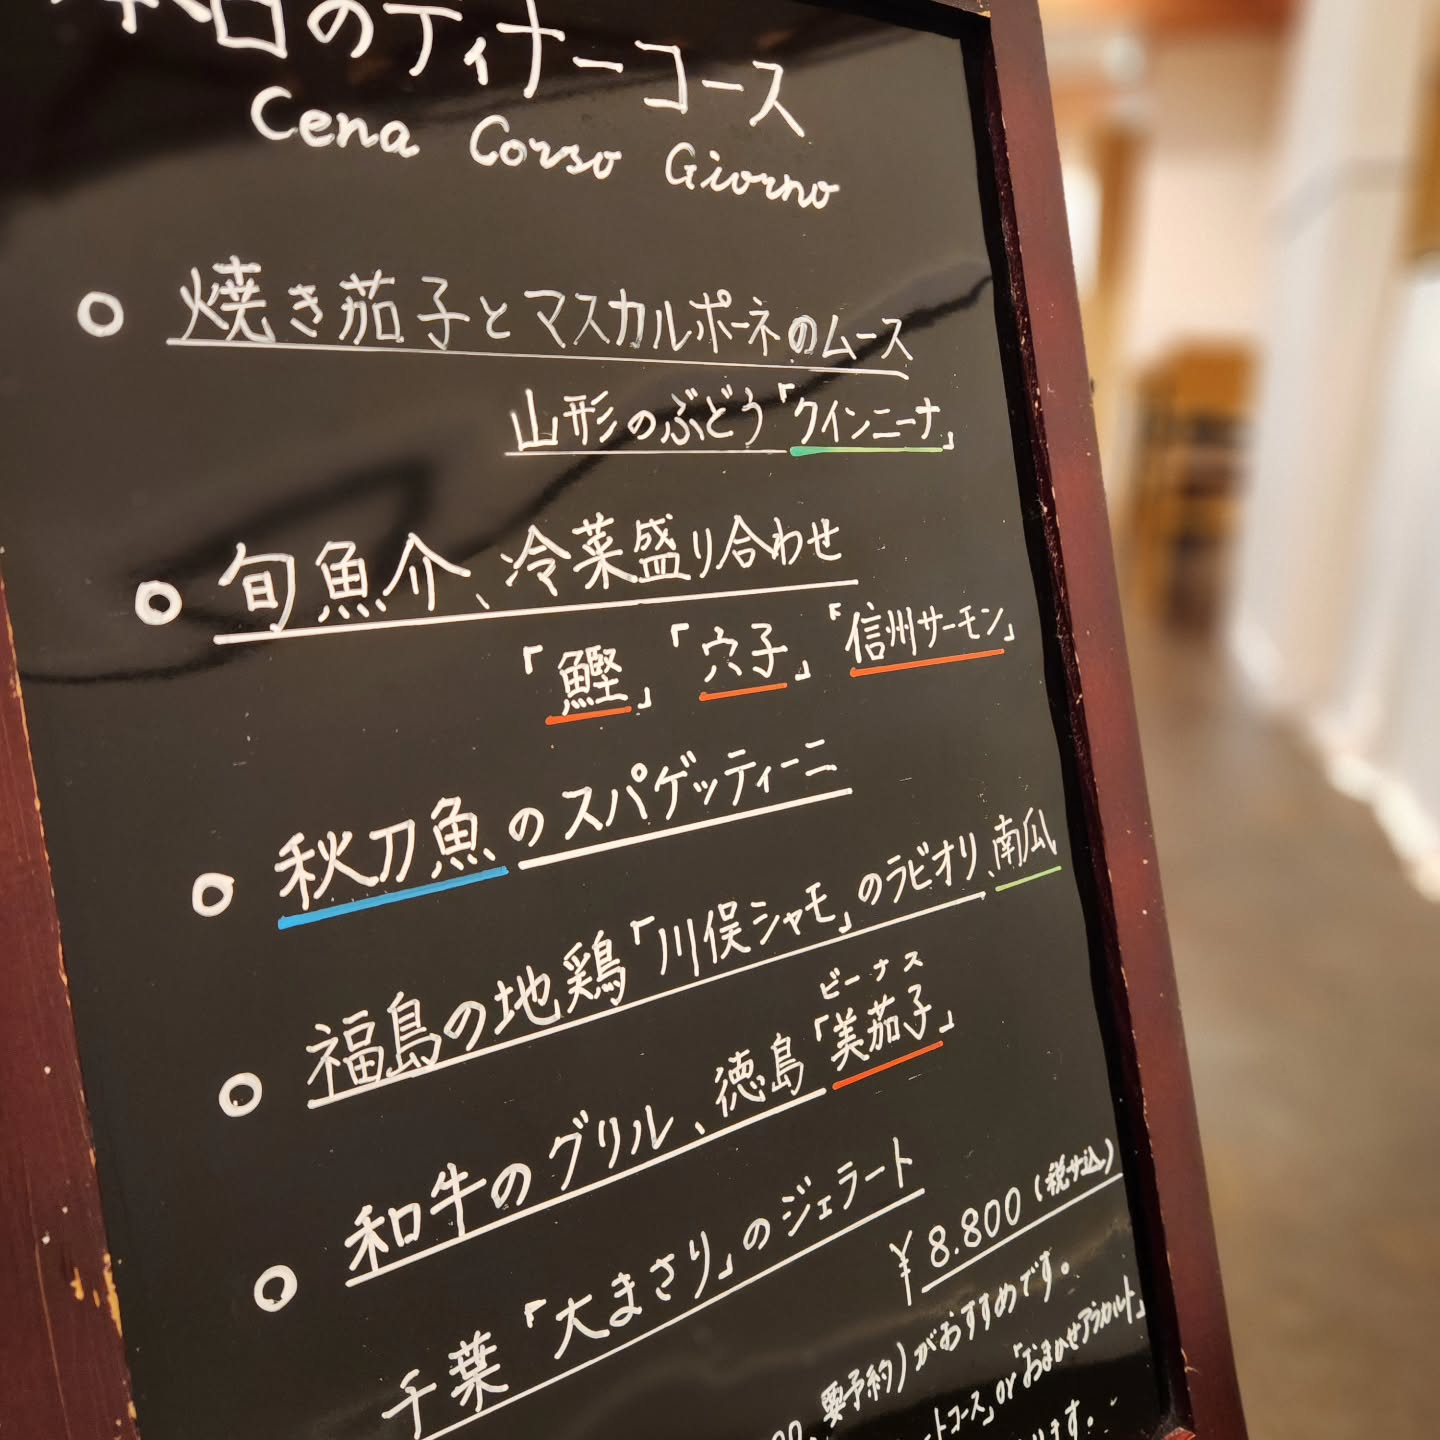 本日のディナーコース
Cena Corso Giorno
焼き茄子とマスカルポーネのムース
山形のぶどう「クインニーナ」
旬魚介、冷菜盛り合わせ
「鰹」「穴子」「信州サーモン」
秋刀魚のスパゲッティーニ
福島の地鶏「川俣シャモ」のラビオリ、南瓜
ビーナス
和牛のグリル、徳島「美茄子」
千葉「大まさり」のジェラート
¥8.800(税サ込)
要予約)がおすすめです。
ートコース」or「おまかせアラカルト」
ります。